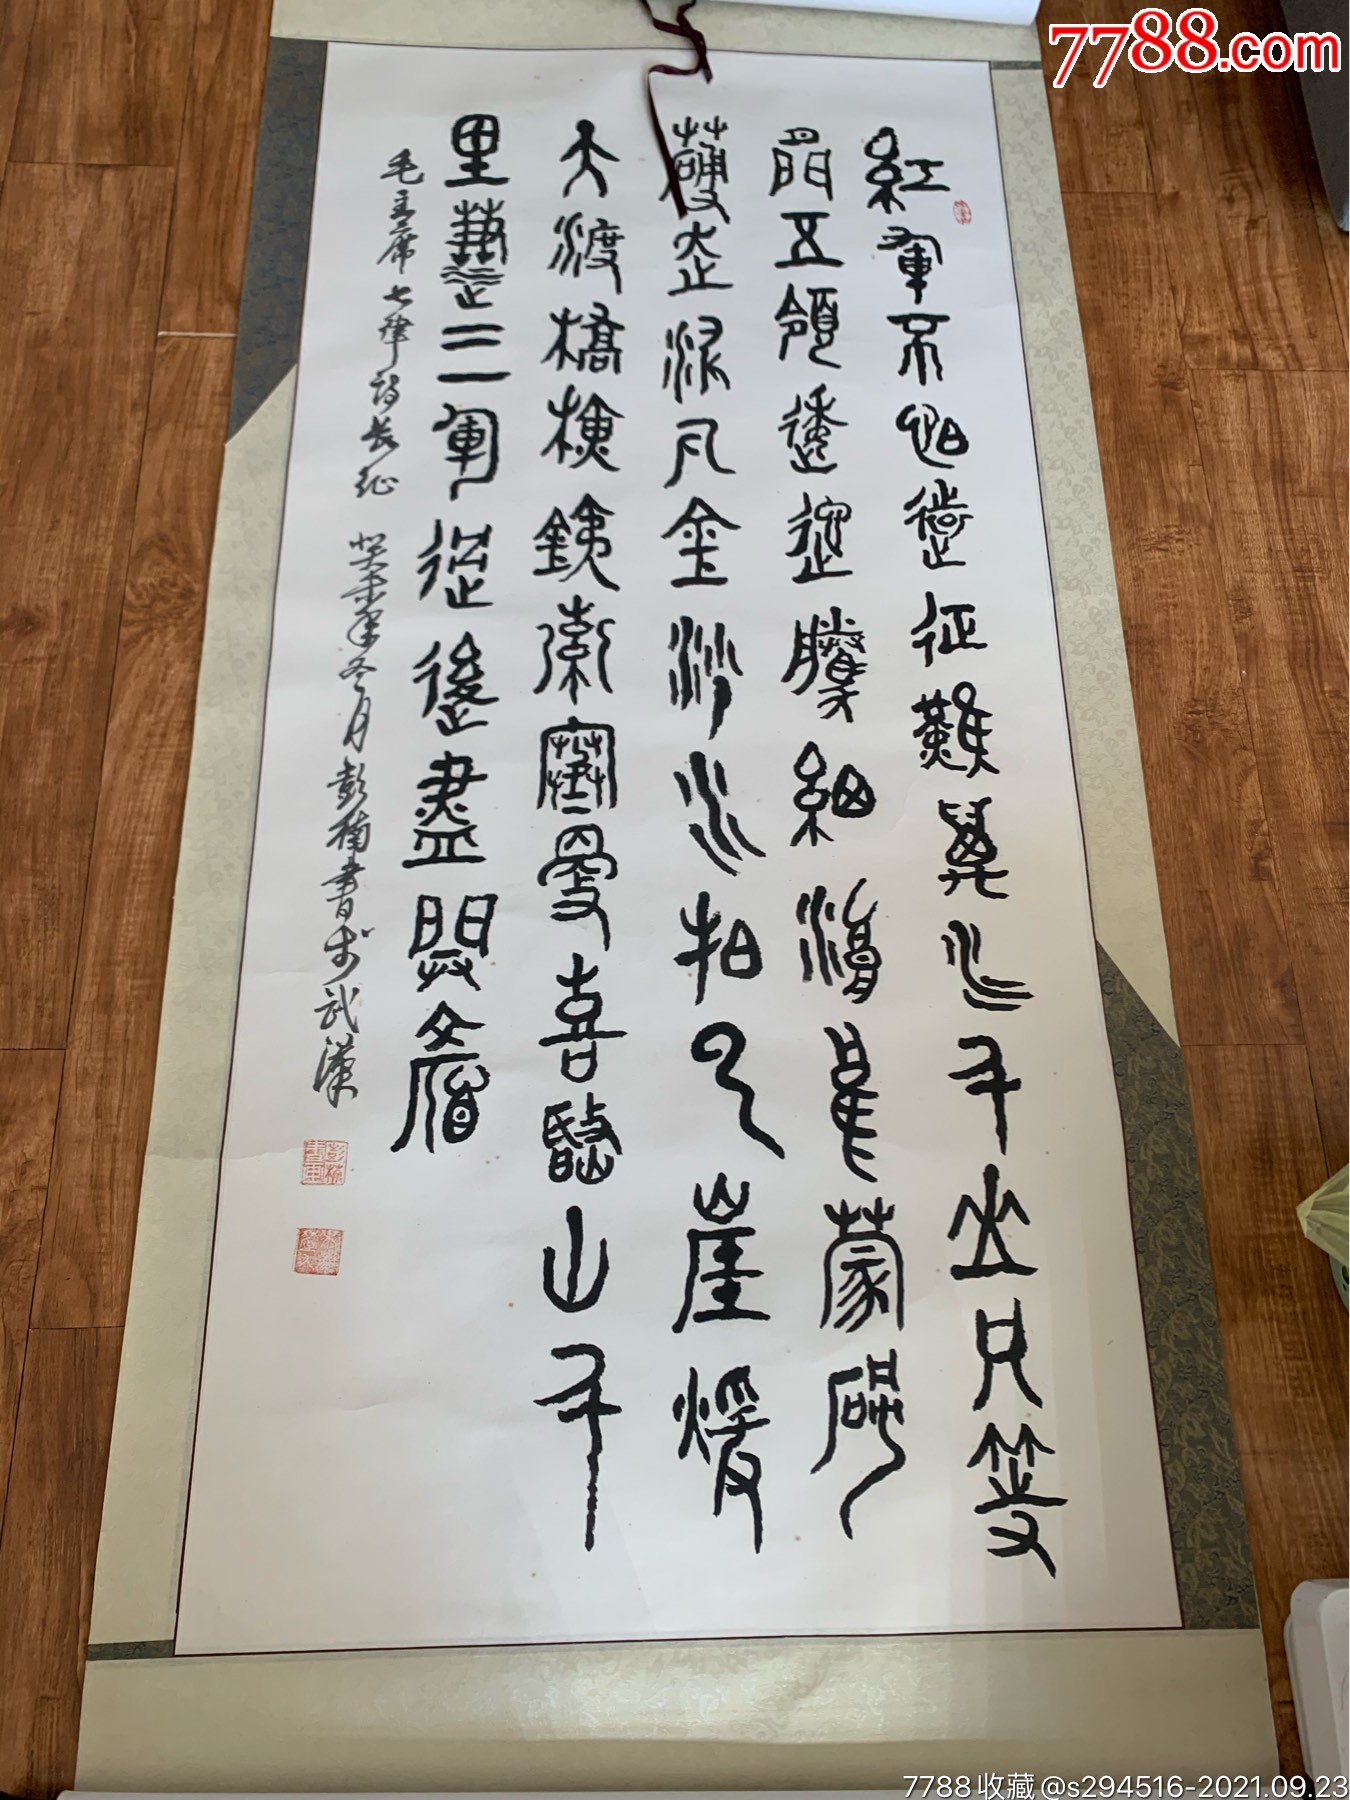 7788.com
紅軍不怕遠征難萬水千山只等
閒五領逶迤騰細浪烏蒙磅
礴走泥丸金沙水拍云崖暖
大渡橋橫鐵索寒更喜岷山千
里雪三軍過後盡開顏
毛主席七律詩長征 癸未年冬月彭楠書於武漢
7788收藏@s294516-2021.09.23